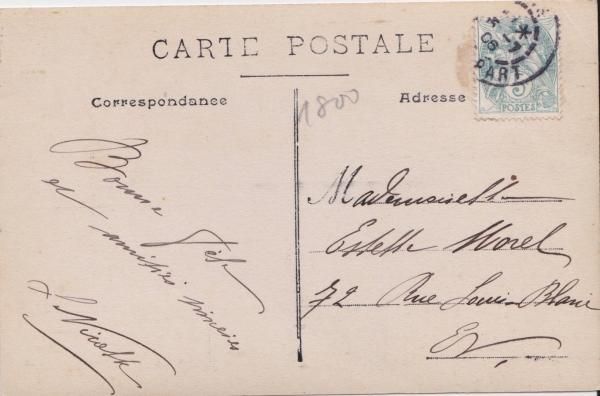 CARTE POSTALE
Correspondance
Adresse
1800
5
POSTES
DÉPART
06
Bonne Fête
et amitiés sincères
Mademoiselle
Estelle Morel
72 Rue Louis-Blanc
EV,